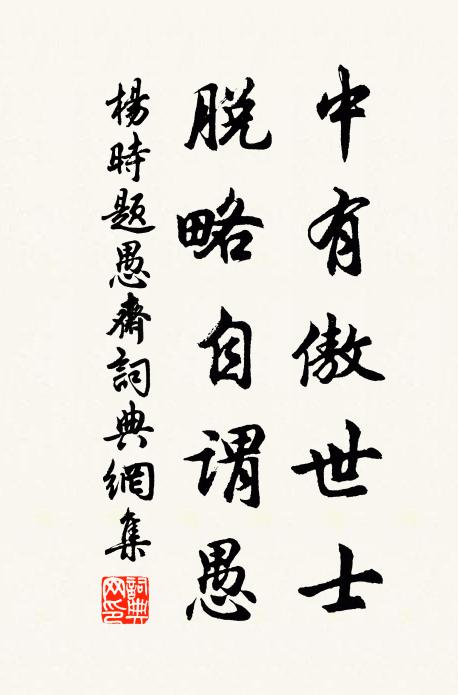 中有傲世士
脫略自謂愚
楊時題愚齋詞典網集
詞典網印